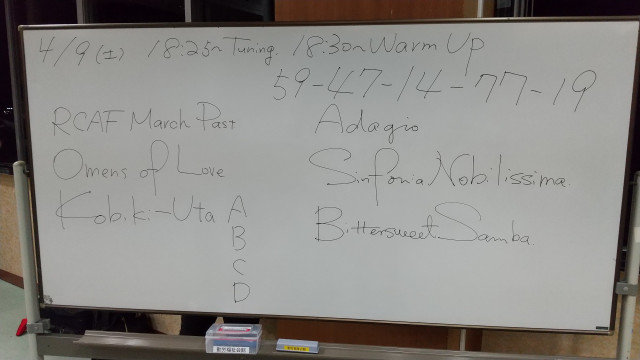 4/9(土) 18:25~Tuning. 18:30~Warm Up
59-47-14-77-19
RCAF March Past
Omens of Love
Kobiki-Uta A
B
C
D
Adagio
Sinfonia Nobilissima
Bittersweet Samba.